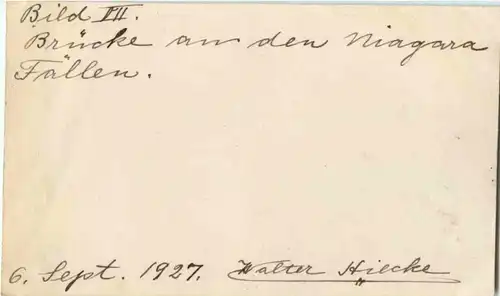 Bild III.
Brücke an den Niagara
Fällen.
6. Sept. 1927. Walter Hiecke